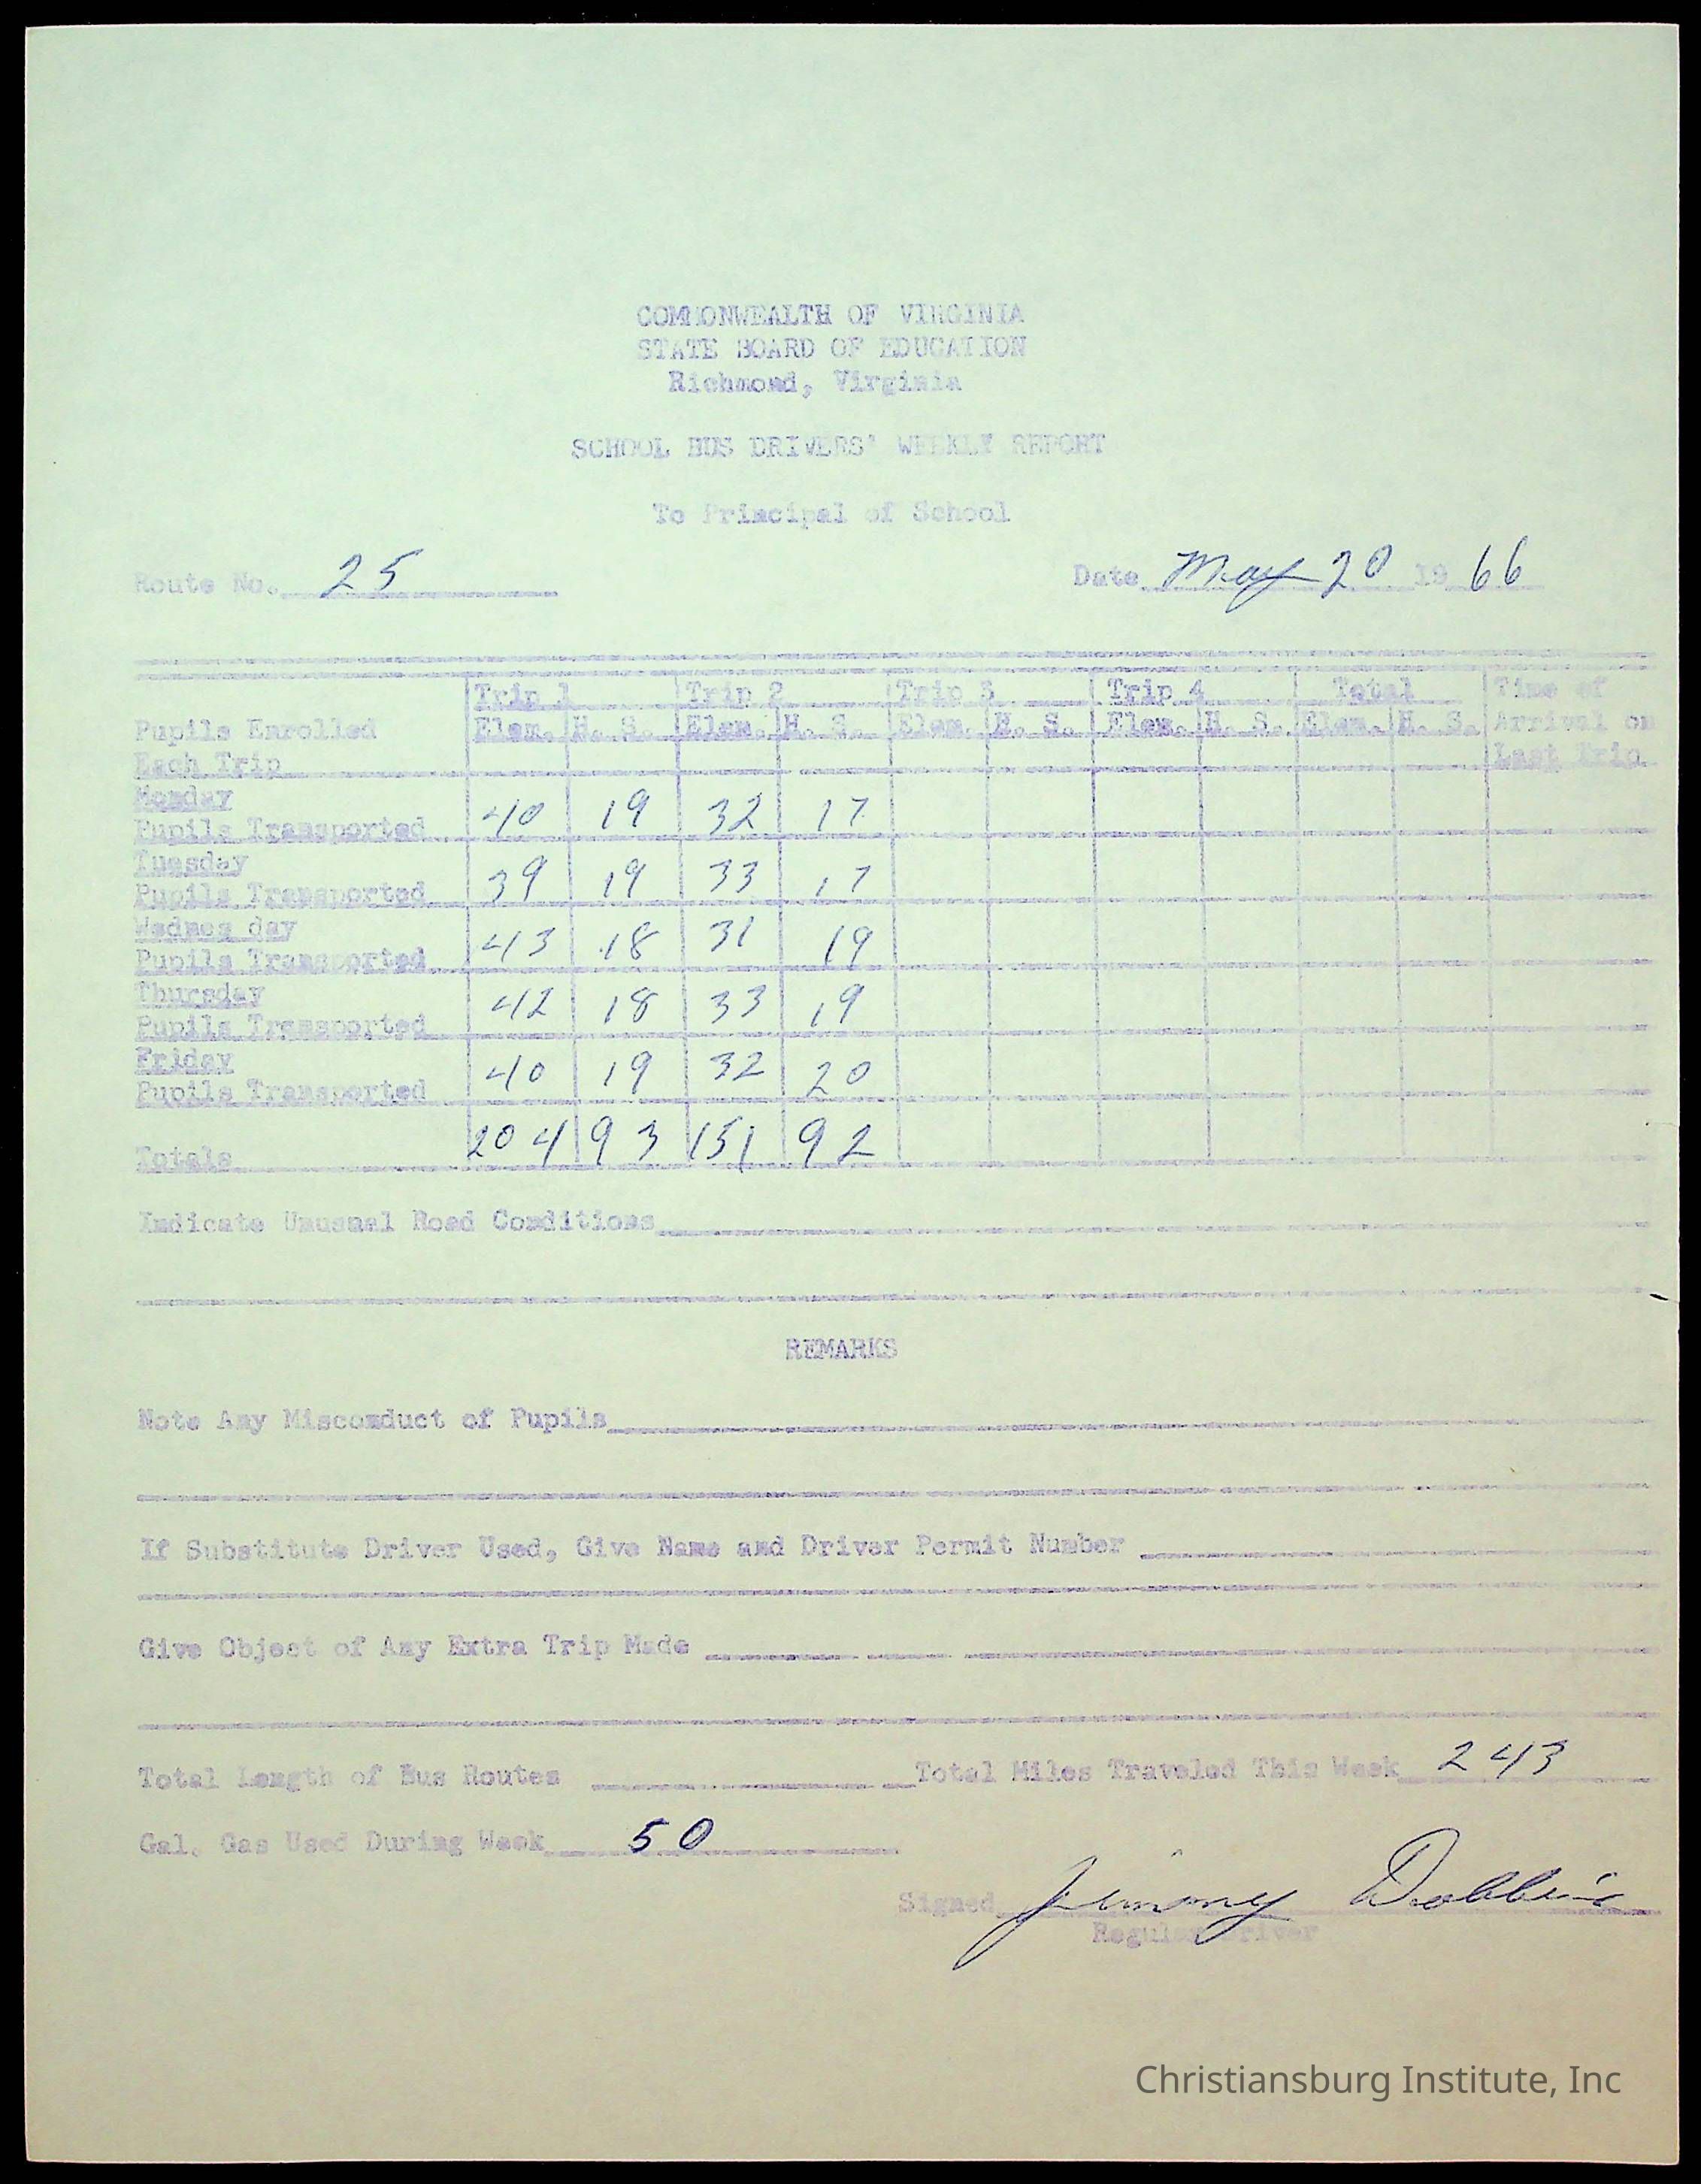 COMMONWEALTH OF VIRGINIA
STATE BOARD OF EDUCATION
Richmond, Virginia
SCHOOL BUS DRIVERS' WEEKLY REPORT
To Principal of School
Route No. 25 Date May 20 19 66
Trip 1 Trip 2 Trip 3 Trip 4 Total Time of
Pupils Enrolled Elem. H. S. Elem. H. S. Elem. H. S. Elem. H. S. Elem. H. S. Arrival on
Each Trip Last Trip
Monday
Pupils Transported 40 19 32 17
Tuesday
Pupils Transported 39 19 33 17
Wednes day
Pupils Transported 43 18 31 19
Thursday
Pupils Transported 42 18 33 19
Friday
Pupils Transported 40 19 32 20
Totals 204 93 151 92
Indicate Unusual Road Conditions
REMARKS
Note Any Misconduct of Pupils
If Substitute Driver Used, Give Name and Driver Permit Number
Give Object of Any Extra Trip Made
Total Length of Bus Routes Total Miles Traveled This Week 243
Gal. Gas Used During Week 50
Signed Jimmy Dobbins
Regular Driver
Christiansburg Institute, Inc